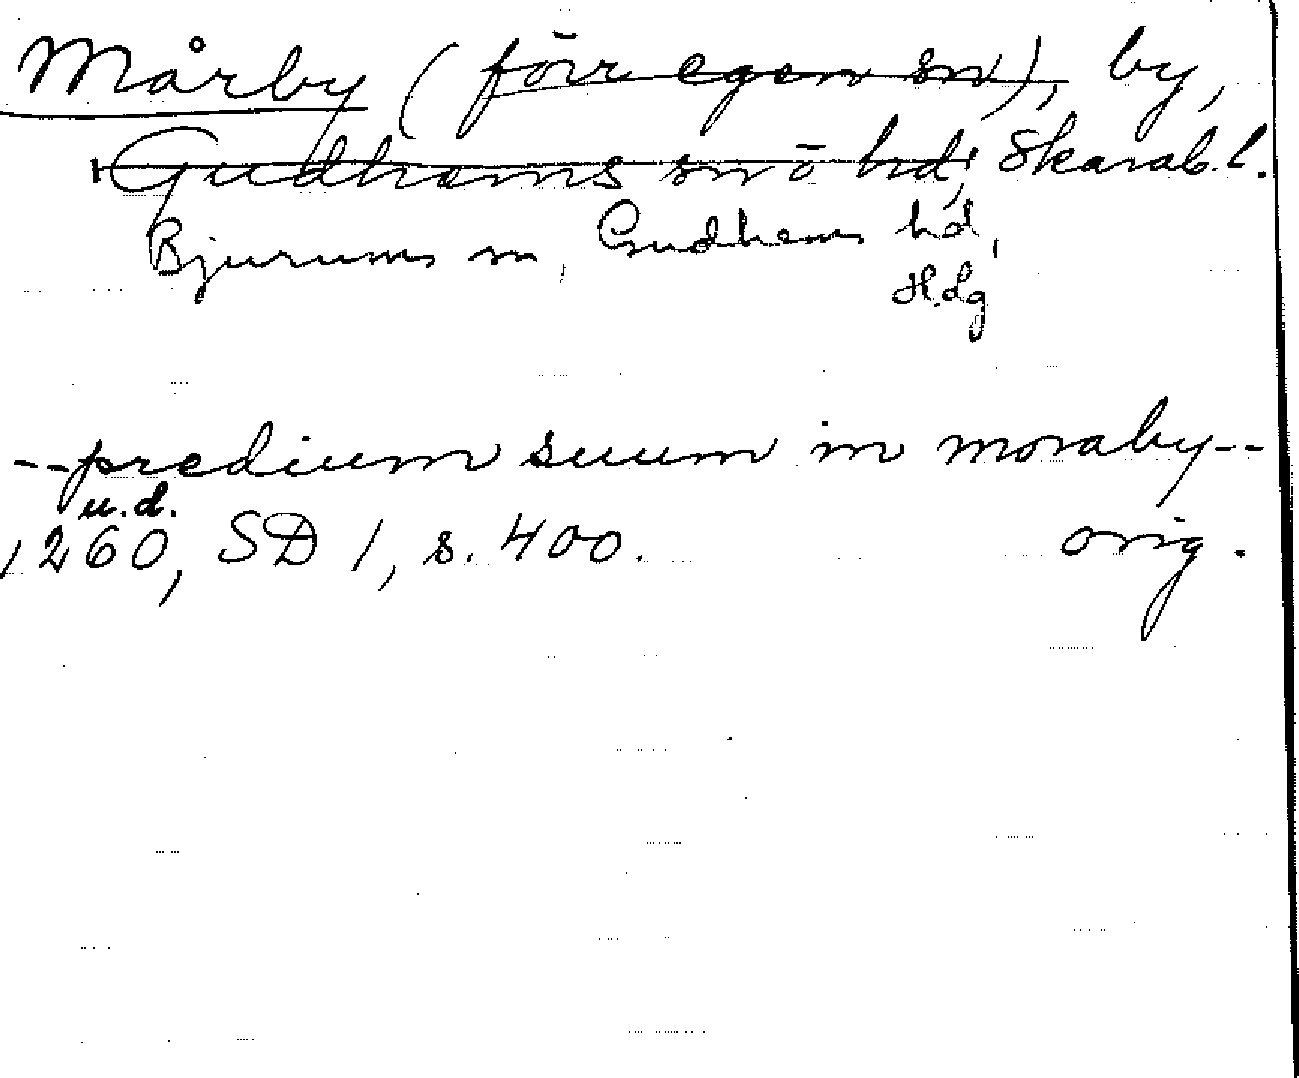 Mårby (förr egen sn), by,
Gudhems sn o hd, Skarab. l.
Bjurums sn, Gudhems hd,
Hdg
--predium suum in moraby--
u.d.
1260, SD 1, s. 400. orig.